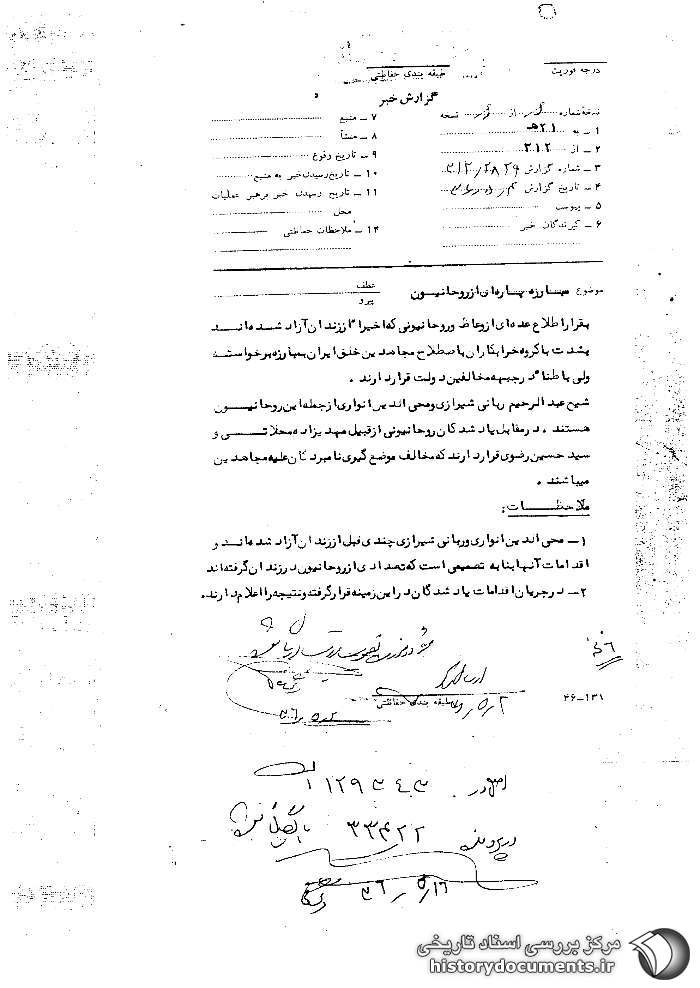 درجه فوریت
طبقه بندی حفاظتی
گزارش خبر
نسخه شماره از نسخه
۱ ـ به ۲۱ هـ
۲ ـ از ۳۱۲
۳ ـ شماره گزارش ۳۱۲/۲۸۲۹
۴ ـ تاریخ گزارش
۵ ـ پیوست
۶ ـ گیرندگان خبر
۷ ـ منبع
۸ ـ منشأ
۹ ـ تاریخ وقوع
۱۰ ـ تاریخ رسیدن خبر به منبع
۱۱ ـ تاریخ رسیدن خبر برهبر عملیات
محل
۱۲ ـ ملاحظات حفاظتی
موضوع مبارزه پاره‌ای از روحانیون
عطف
پیرو
بقرار اطلاع عده‌ای از وعاظ و روحانیونی که اخیرا از زندان آزاد شده‌اند
بشدت با گروه خرابکاران باصطلاح مجاهدین خلق ایران بمبارزه برخواسته
ولی باطناً در جبهه مخالفین دولت قرار دارند .
شیخ عبدالرحیم ربانی شیرازی و محی الدین انواری از جمله این روحانیون
هستند . در مقابل یاد شدگان روحانیونی از قبیل مهدیزاده محلاتی و
سید حسین رضوی قرار دارند که مخالف موضع گیری نامبردگان علیه مجاهدین
میباشند .
ملاحظات :
۱ـ محی الدین انواری و ربانی شیرازی چندی قبل از زندان آزاد شده‌اند و
اقدامات آنها بنا به تصمیمی است که تعدادی از روحانیون در زندان گرفته‌اند
۲ـ در جریان اقدامات یاد شدگان در این زمینه قرار گرفته و نتیجه را اعلام دارند.
طبقه بندی حفاظتی
۴۶-۱۳۱
اصل در ۱۱۲۹۳۴۳
در پرونده ۳۳۴۲۲
۳۶/۵/۱۶
مرکز بررسی اسناد تاریخی
historydocuments.ir